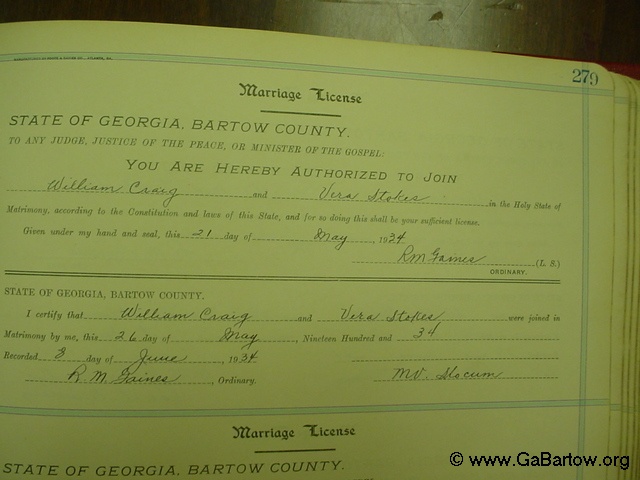 279
Marriage License
STATE OF GEORGIA, BARTOW COUNTY.
TO ANY JUDGE, JUSTICE OF THE PEACE, OR MINISTER OF THE GOSPEL:
YOU ARE HEREBY AUTHORIZED TO JOIN
William Craig and Vera Stokes in the Holy State of
Matrimony, according to the Constitution and laws of this State, and for so doing this shall be your sufficient license.
Given under my hand and seal, this 21 day of May, 1934
RM Gaines (L. S.)
ORDINARY.
STATE OF GEORGIA, BARTOW COUNTY.
I certify that William Craig and Vera Stokes were joined in
Matrimony by me, this 26 day of May, Nineteen Hundred and 34
Recorded 8 day of June 1934
R. M. Gaines, Ordinary. M.V. Slocum
Marriage License
STATE OF GEORGIA, BARTOW COUNTY.
© www.GaBartow.org